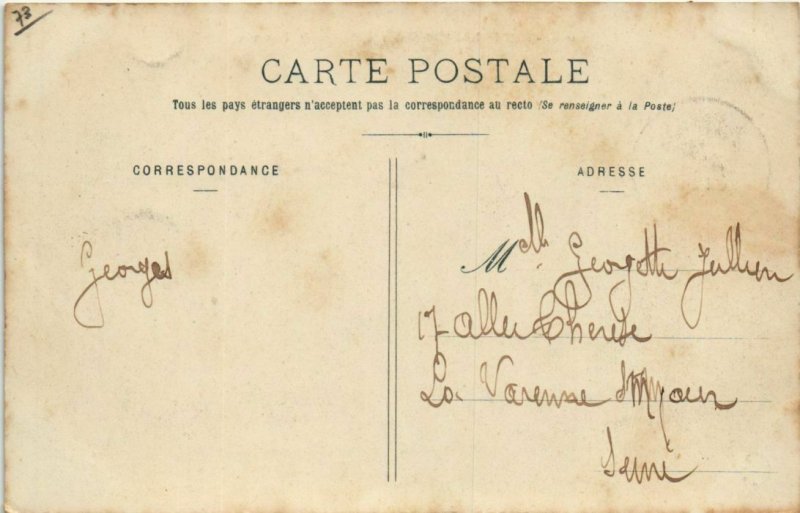 73
CARTE POSTALE
Tous les pays étrangers n'acceptent pas la correspondance au recto (Se renseigner à la Poste)
CORRESPONDANCE
ADRESSE
Georges
Melle Georgette Jullien
17 allée Therese
La Varenne
Seine